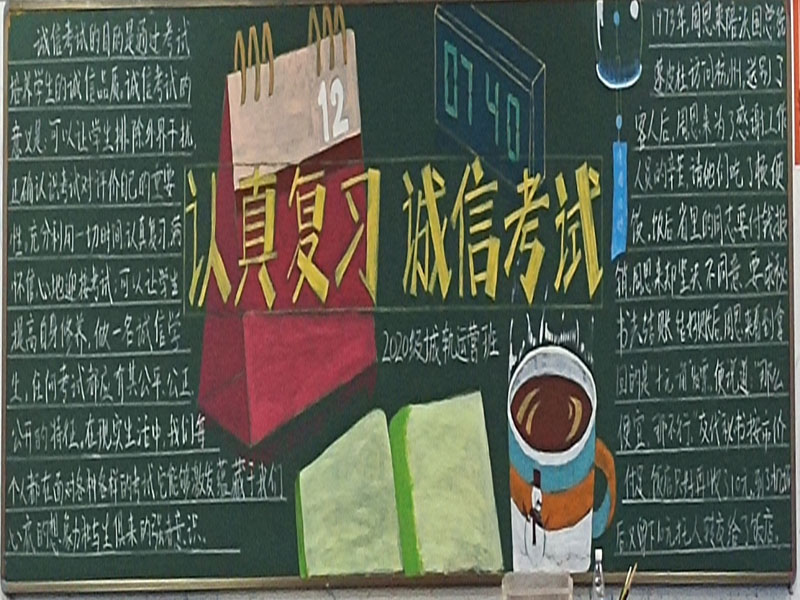 诚信考试的目的是通过考试
培养学生的诚信品质,诚信考试的
意义是:可以让学生排除外界干扰,
正确认识考试对评价自己的重要
性,充分利用一切时间认真复习,满
怀信心地迎接考试;可以让学生
提高自身修养,做一名诚信学
生,任何考试都应有其公平、公正、
公开的特征,在现实生活中,我们每
个人都在面对各种各样的考试它能够激发蕴藏于我们
心底的想象力和与生俱来的强者意识。
12
07 40
认真复习 诚信考试
2020级城轨运营班
1973年,周恩来陪法国总统
蓬皮杜访问杭州,送别了
客人后,周恩来为了感谢工作
人员的辛苦,请他们吃了顿便
饭。饭后,省里的同志要付钱报
销,周恩来却坚决不同意,要求秘
书去结账,付好账后,周恩来看到拿
回的是十元一角发票,便说道:"那么
便宜,那不行。"
后又留下10元托人转交给了饭店。